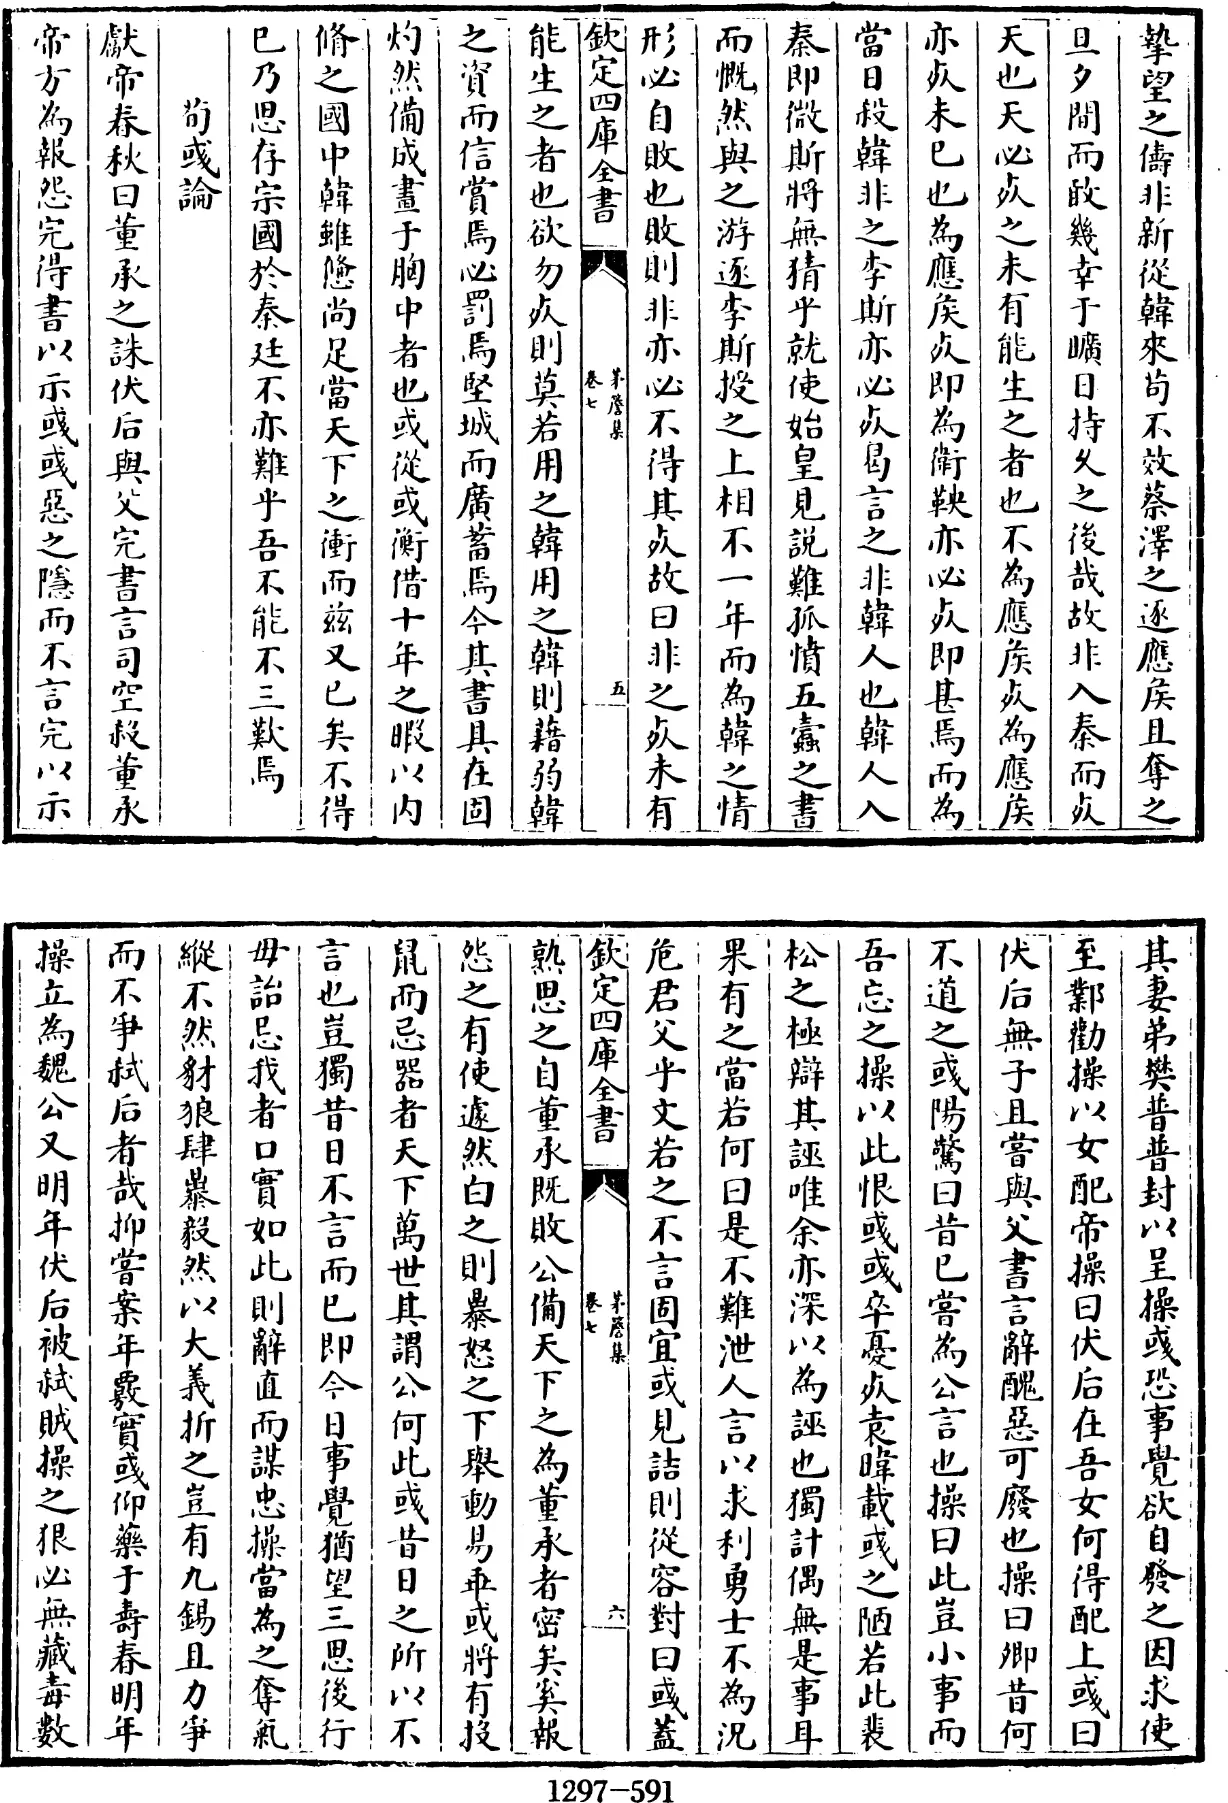 摯望之儔非新從韓來苟不效蔡澤之逐應矦且奪之
旦夕間而敢幾幸于曠日持久之後哉故非入秦而㱙
天也天必㱙之未有能生之者也不為應矦㱙為應矦
亦㱙未已也為應矦㱙即為衛鞅亦必㱙即甚焉而為
當日殺韓非之李斯亦必㱙曷言之非韓人也韓人入
秦即微斯將無猜乎就使始皇見說難孤憤五蠹之書
而慨然與之游逐李斯授之上相不一年而為韓之情
形必自敗也敗則非亦必不得其㱙故曰非之㱙未有
欽定四庫全書
茅簷集
卷七
五
能生之者也欲勿㱙則莫若用之韓用之韓則藉弱韓
之資而信賞焉必罰焉堅城而廣蓄焉今其書具在固
灼然備成畫于胸中者也或從或衡借十年之暇以内
脩之國中韓雖憊尚足當天下之衝而兹又已矣不得
已乃思存宗國於秦廷不亦難乎吾不能不三歎焉
荀彧論
獻帝春秋曰董承之誅伏后與父完書言司空殺董承
帝方為報怨完得書以示彧彧惡之隱而不言完以示
其妻弟樊普普封以呈操彧恐事覺欲自發之因求使
至鄴勸操以女配帝操曰伏后在吾女何得配上彧曰
伏后無子且嘗與父書言辭醜惡可廢也操曰卿昔何
不道之彧陽驚曰昔已嘗為公言也操曰此豈小事而
吾忘之操以此恨彧彧卒憂㱙袁暐載彧之陋若此裴
松之極辯其誣唯余亦深以為誣也獨計偶無是事耳
果有之當若何曰是不難泄人言以求利勇士不為況
危君父乎文若之不言固宜或見詰則從容對曰彧蓋
欽定四庫全書
茅簷集
卷七
六
熟思之自董承既敗公備天下之為董承者密矣奚報
怨之有使遽然白之則暴怒之下舉動易乖或將有投
鼠而忌器者天下萬世其謂公何此彧昔日之所以不
言也豈獨昔日不言而已即今日事覺猶望三思後行
毋詒忌我者口實如此則辭直而謀忠操當為之奪氣
縱不然豺狼肆暴毅然以大義折之豈有九錫且力爭
而不爭弒后者哉抑嘗案年覈實彧仰藥于壽春明年
操立為魏公又明年伏后被弒賊操之狠必無藏毒數
1297-591